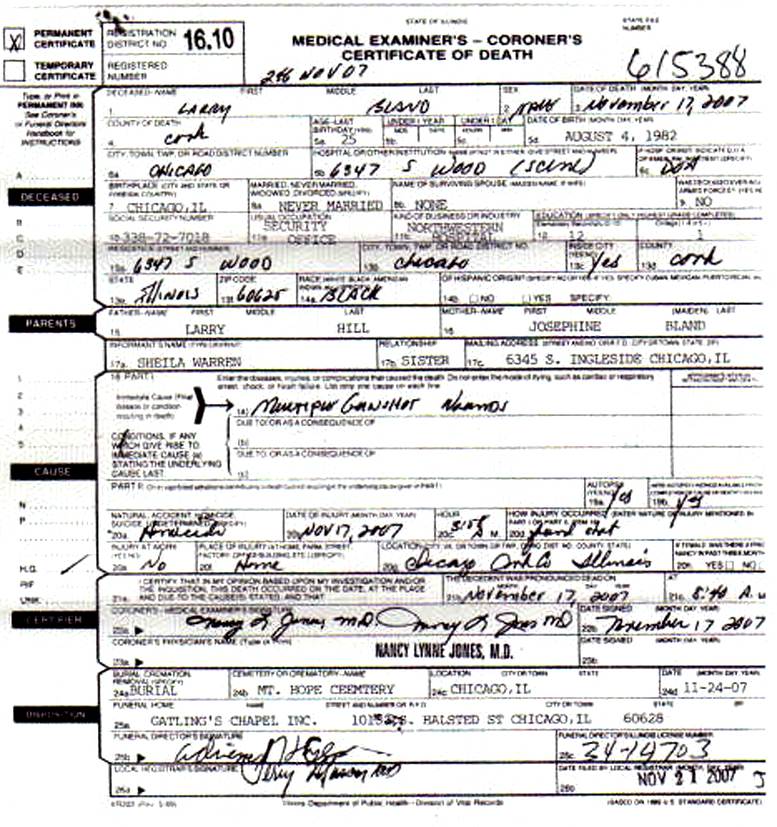 STATE OF ILLINOIS
STATE FILE NUMBER
X PERMANENT CERTIFICATE
REGISTRATION DISTRICT NO. 16.10
MEDICAL EXAMINER'S – CORONER'S
CERTIFICATE OF DEATH
TEMPORARY CERTIFICATE
REGISTERED NUMBER
NOV 07
615388
Type, or Print in PERMANENT INK
See Coroner's or Funeral Directors Handbook for INSTRUCTIONS
DECEASED-NAME FIRST MIDDLE LAST SEX DATE OF DEATH (MONTH, DAY, YEAR)
1. LARRY BLAND 2. MALE 3. November 17, 2007
COUNTY OF DEATH AGE-LAST BIRTHDAY (YRS) UNDER 1 YEAR UNDER 1 DAY DATE OF BIRTH (MONTH, DAY, YEAR)
4. cook 5a. 25 5b. 5c. 5d. AUGUST 4, 1982
CITY, TOWN, TWP, OR ROAD DISTRICT NUMBER HOSPITAL OR OTHER INSTITUTION
6a. CHICAGO 6b. 6347 S WOOD (SCENE) 6c. DOA
DECEASED
BIRTHPLACE (CITY AND STATE OR FOREIGN COUNTRY) MARRIED, NEVER MARRIED, WIDOWED, DIVORCED (SPECIFY) NAME OF SURVIVING SPOUSE (MAIDEN NAME, IF WIFE)
7. CHICAGO, IL 8a. NEVER MARRIED 8b. NONE 9. NO
SOCIAL SECURITY NUMBER USUAL OCCUPATION KIND OF BUSINESS OR INDUSTRY EDUCATION (SPECIFY ONLY HIGHEST GRADE COMPLETED)
10. 338-72-7018 11a. SECURITY OFFICE 11b. NORTHWESTERN HOSPITAL 12. 12
RESIDENCE (STREET AND NUMBER) CITY, TOWN, TWP, OR ROAD DISTRICT NO. INSIDE CITY COUNTY
13a. 6347 S WOOD 13b. chicago 13c. yes 13d. cook
STATE ZIP CODE RACE (WHITE, BLACK, AMERICAN INDIAN OF HISPANIC ORIGIN?
13e. ILLINOIS 13f. 60625 14a. BLACK 14b. NO YES SPECIFY:
PARENTS
FATHER-NAME FIRST MIDDLE LAST MOTHER-NAME FIRST MIDDLE (MAIDEN) LAST
15. LARRY HILL 16. JOSEPHINE BLAND
INFORMANT'S NAME (TYPE OR PRINT) RELATIONSHIP MAILING ADDRESS
17a. SHEILA WARREN 17b. SISTER 17c. 6345 S. INGLESIDE CHICAGO, IL
18. PART I. Enter the diseases, injuries, or complications that caused the death. Do not enter the mode of dying, such as cardiac or respiratory arrest, shock, or heart failure. List only one cause on each line.
Immediate Cause (Final disease or condition resulting in death)
(a) MULTIPLE GUNSHOT WOUNDS
DUE TO, OR AS A CONSEQUENCE OF
CONDITIONS, IF ANY WHICH GIVE RISE TO IMMEDIATE CAUSE (a) STATING THE UNDERLYING CAUSE LAST.
(b)
DUE TO, OR AS A CONSEQUENCE OF
(c)
CAUSE
PART II.
AUTOPSY (YES/NO)
19a. yes 19b. yes
NATURAL, ACCIDENT, HOMICIDE, SUICIDE, UNDETERMINED DATE OF INJURY (MONTH, DAY, YEAR) HOUR HOW INJURY OCCURRED
20a. Homicide 20b. NOV 17, 2007 20c. M. 20d.
INJURY AT WORK (YES/NO) PLACE OF INJURY LOCATION
20e. No 20f. Home 20g. Chicago Illinois 20h. YES NO
I CERTIFY THAT IN MY OPINION BASED UPON MY INVESTIGATION AND/OR THE INQUISITION, THIS DEATH OCCURRED ON THE DATE, AT THE PLACE AND DUE TO THE CAUSE(S) STATED, AND THAT
THE DECEDENT WAS PRONOUNCED DEAD ON MONTH DAY YEAR AT
21a. 21b. November 17, 2007 21c. 8:40 A.M.
CERTIFIER
CORONER'S – MEDICAL EXAMINER'S SIGNATURE DATE SIGNED (MONTH, DAY, YEAR)
22a. Nancy L Jones M.D. Nancy L Jones MD 22b. November 17 2007
CORONER'S PHYSICIAN'S NAME (Type or Print) DATE SIGNED (MONTH, DAY, YEAR)
23a. NANCY LYNNE JONES, M.D. 23b.
BURIAL, CREMATION, REMOVAL (SPECIFY) CEMETERY OR CREMATORY-NAME LOCATION CITY OR TOWN STATE DATE (MONTH, DAY, YEAR)
24a. BURIAL 24b. MT. HOPE CEEMTERY 24c. CHICAGO, IL 24d. 11-24-07
DISPOSITION
FUNERAL HOME NAME STREET AND NUMBER OR R.F.D. CITY OR TOWN STATE ZIP
25a. GATLING'S CHAPEL INC. S. HALSTED ST CHICAGO, IL 60628
FUNERAL DIRECTOR'S SIGNATURE FUNERAL DIRECTOR'S ILLINOIS LICENSE NUMBER
25b. 25c. 34-14703
LOCAL REGISTRAR'S SIGNATURE DATE FILED BY LOCAL REGISTRAR (MONTH, DAY, YEAR)
26a. 26b. NOV 21 2007
Illinois Department of Public Health – Division of Vital Records
(BASED ON 1989 U.S. STANDARD CERTIFICATE)